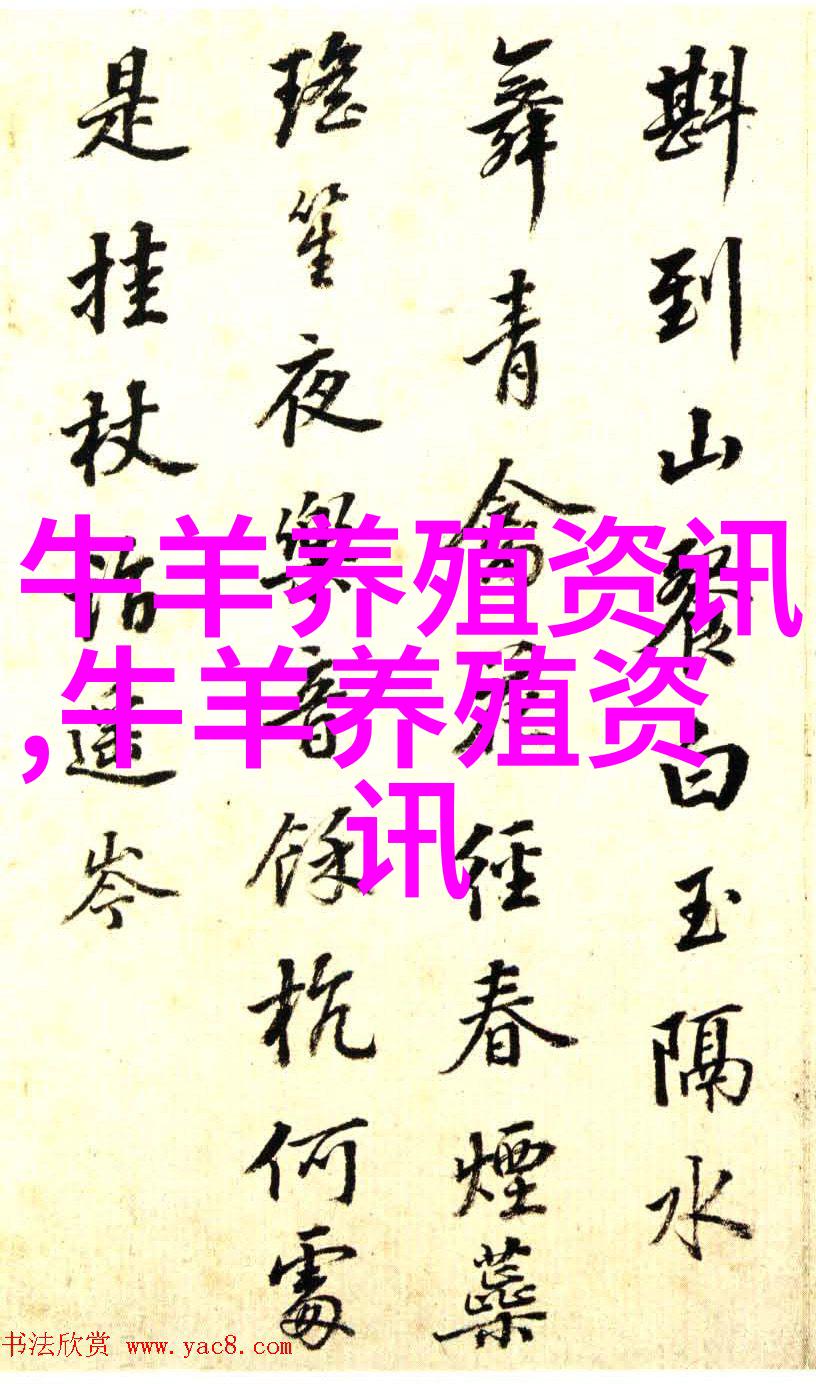 斟到山餐白玉隔水
舞青禽花經春煙蘂
瑤笙夜樂音餘杭何處
是挂杖詣遥岑
牛羊养殖资讯
,牛羊养殖资
讯
书法欣赏 www.yac8.com